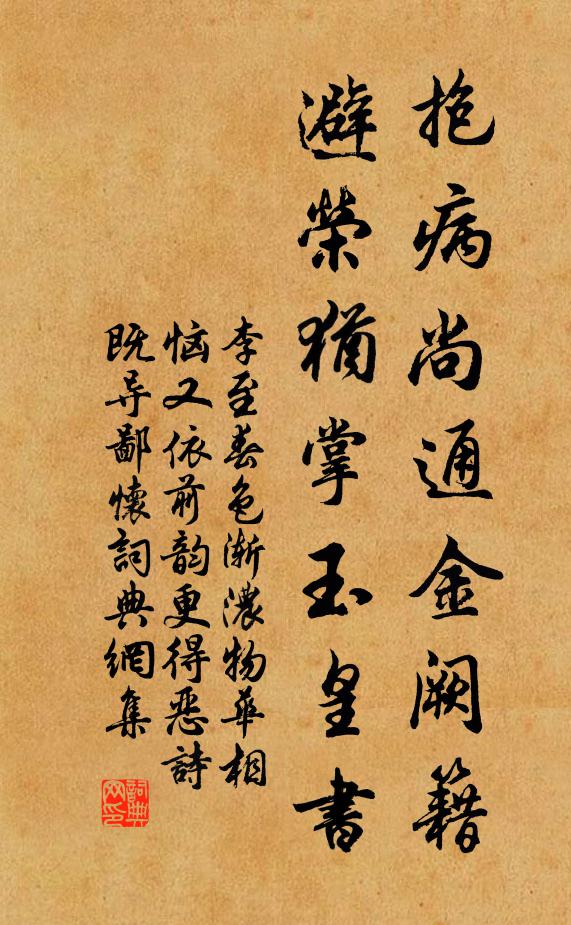 抱病尚通金阙籍
避榮猶掌玉皇書
李至春色漸濃物華相
恼又依前韵更得恶詩
既导鄙懷詞典網集
詞典
网印